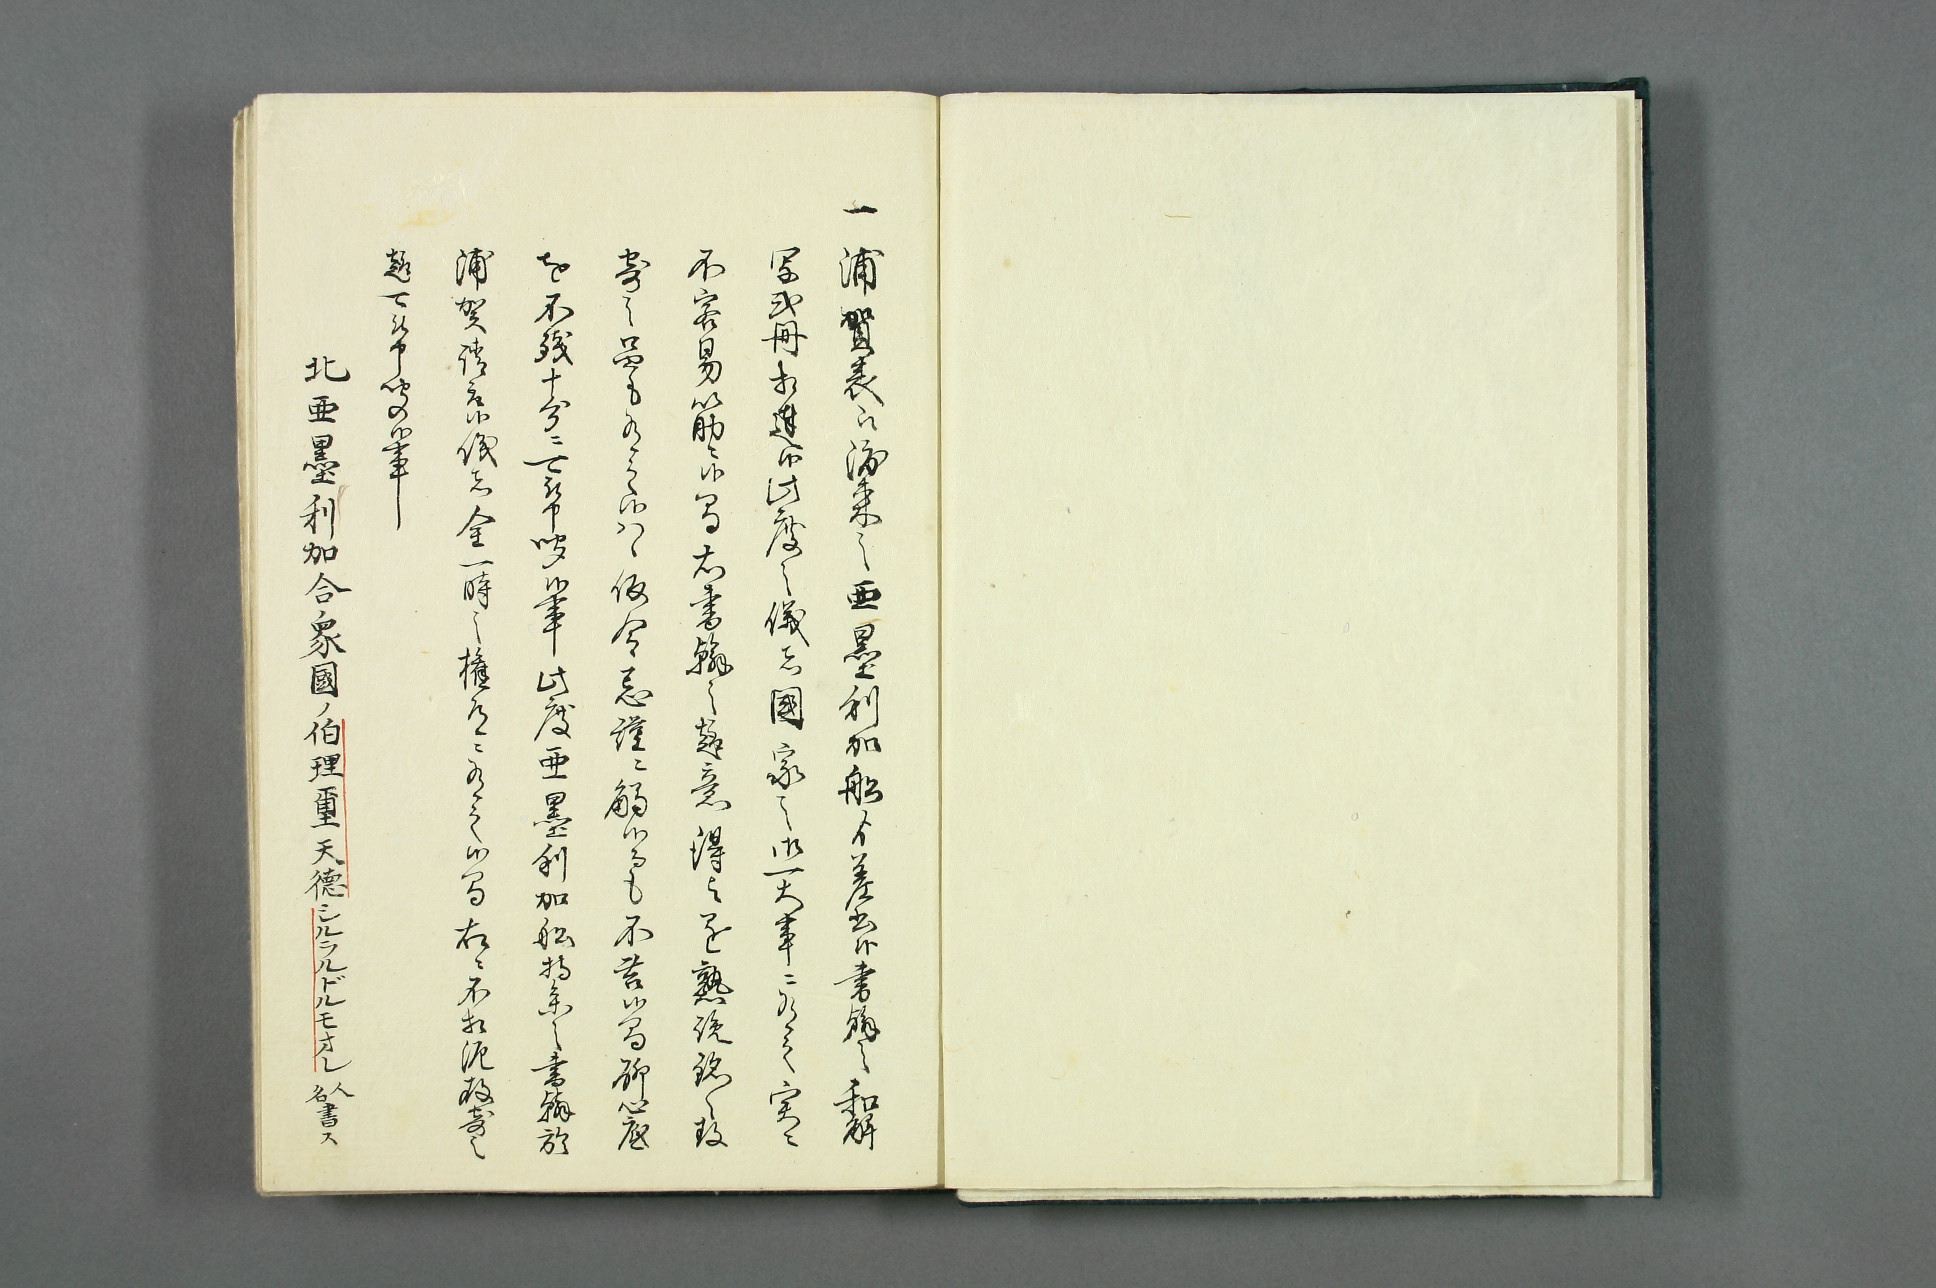 一浦賀表江渡来之亜墨利加船ゟ差出候書翰之和解
写弐冊相達候此度之儀者国家之御一大事ニ有之実ニ
不容易筋ニ候間右書翰之趣意得与遂熟覧銘々致
寄之品も有之候ハヽ仮令忌諱ニ觸候而も不苦候間聊心底
を不残十分ニ可被申聞候事此度亜墨利加船持参之書翰於
浦賀請取候儀者全一時之権道ニ有之候間右ニ不相泥存寄之
趣可被申聞候事
北亜墨利加合衆國ノ伯理璽天德シルラルドルモオレ人名書ス